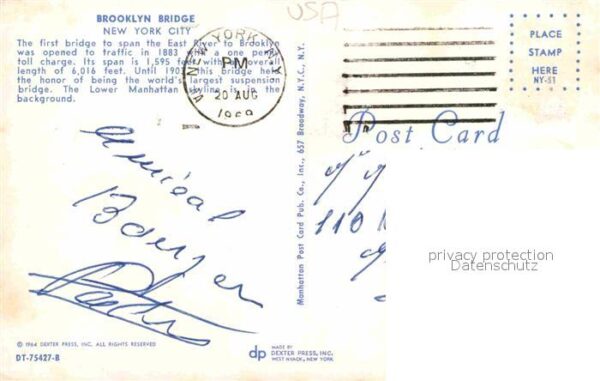 USA
BROOKLYN BRIDGE
NEW YORK CITY
The first bridge to span the East River to Brooklyn
was opened to traffic in 1883 with a one penny
toll charge. Its span is 1,595 feet with a overall
length of 6,016 feet. Until 1903 this bridge held
the honor of being the world's largest suspension
bridge. The Lower Manhattan skyline is in the
background.
NEW YORK, N.Y.
PM
20 AUG
1969
PLACE
STAMP
HERE
NY-51
Post Card
Amical
110
Manhattan Post Card Pub. Co., Inc., 657 Broadway, N.Y.C., N.Y.
privacy protection
Datenschutz
© 1964 DEXTER PRESS, INC. ALL RIGHTS RESERVED
DT-75427-B
dp
MADE BY
DEXTER PRESS, INC.
WEST NYACK, NEW YORK